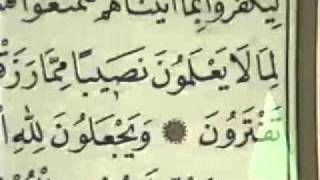 لِيَكْفُرُوا بِمَا آتَيْنَاهُمْ فَتَمَتَّعُوا
لِمَا لَا يَعْلَمُونَ نَصِيبًا مِمَّا رَزَقْ
تَفْتَرُونَ ۞ وَيَجْعَلُونَ لِلَّهِ